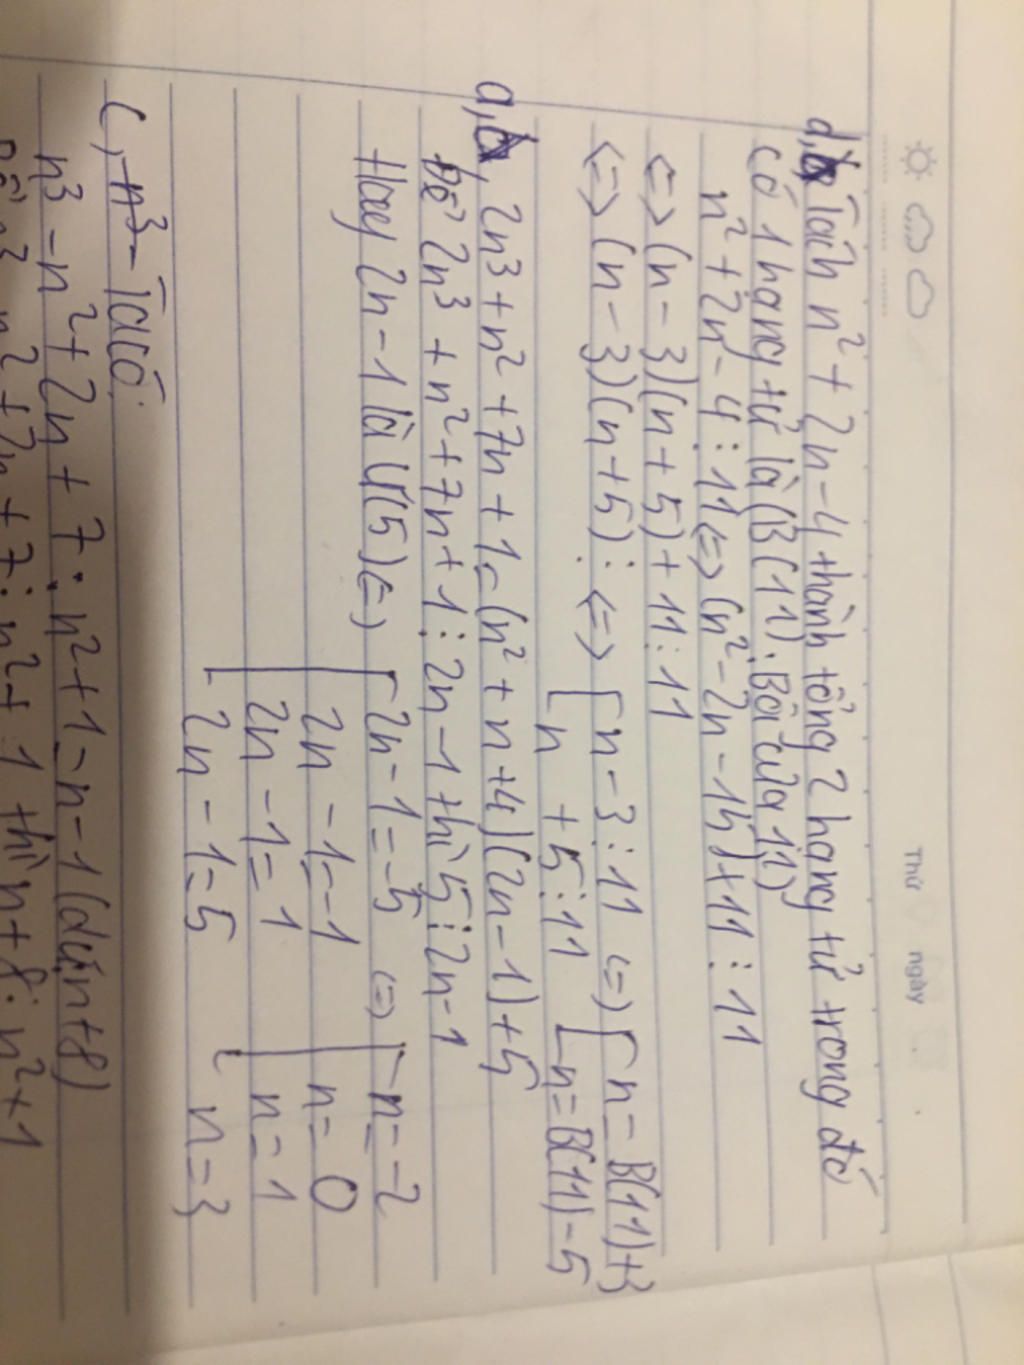 Thứ ngày
d, Tách n² + 2n - 4 thành tổng 2 hạng tử trong đó
có 1 hạng tử là (B(11). Bội của 11)
n² + 2n - 4 ⋮ 11 <=> (n² - 2n - 15) + 11 ⋮ 11
<=> (n - 3)(n + 5) + 11 ⋮ 11
<=> (n - 3)(n + 5) ⋮ <=> [ n - 3 ⋮ 11 <=> [ n = B(11) + 3
n + 5 ⋮ 11 [ n = B(11) - 5
a, 2n³ + n² + 7n + 1 = (n² + n + 4)(2n - 1) + 5
Để 2n³ + n² + 7n + 1 ⋮ 2n - 1 thì 5 ⋮ 2n - 1
Hay 2n - 1 là Ư(5) <=> [ 2n - 1 = -5 <=> [ n = -2
2n - 1 = -1 n = 0
2n - 1 = 1 n = 1
2n - 1 = 5 n = 3
c, n³ - Ta có:
n³ - n² + 2n + 7 : n² + 1 = n - 1 (dư n + 8)
Để n³ - n² + 2n + 7 ⋮ n² + 1 thì n + 8 ⋮ n² + 1